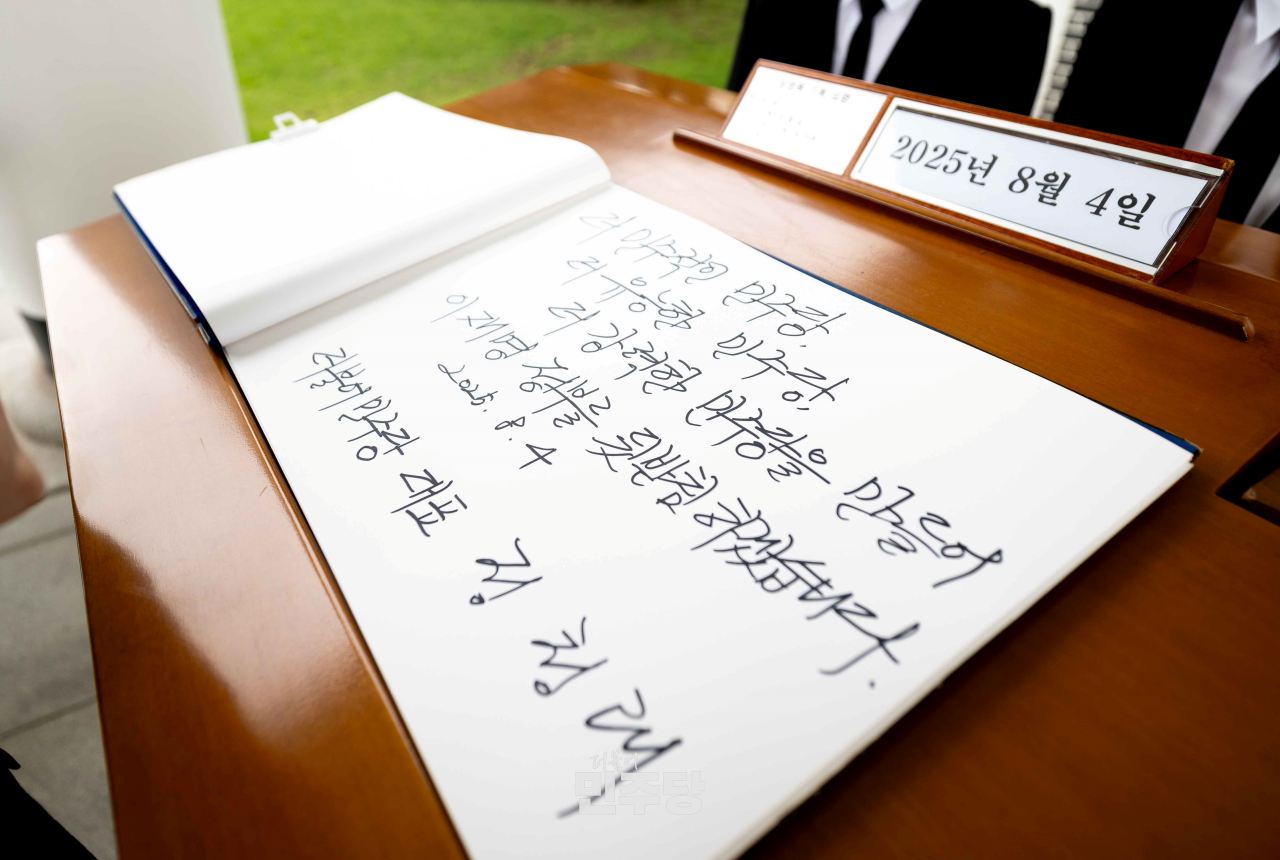 2025년 8월 4일
더 민주적인 민주당,
더 유능한 민주당,
더 강력한 민주당을 만들어
이재명 정부를 뒷받침 하겠습니다.
2025. 8. 4
더불어민주당 대표
정 청 래
더불어
민주당